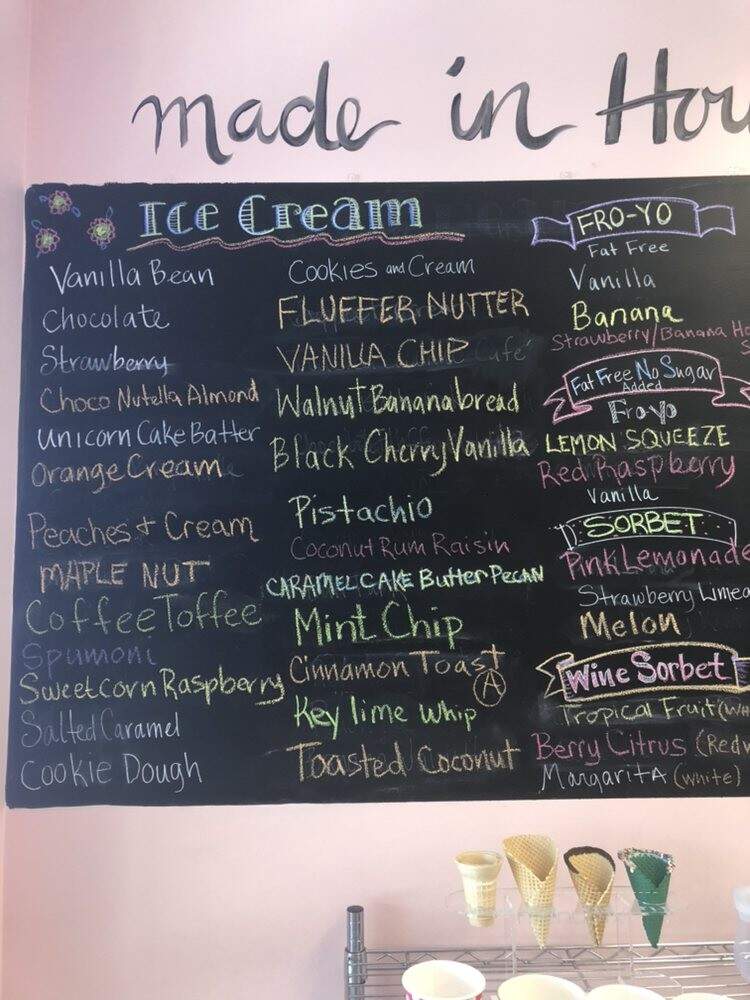 made in Hou
Ice Cream
Vanilla Bean
Chocolate
Strawberry
Choco Nutella Almond
Unicorn Cake Batter
Orange Cream
Peaches + Cream
MAPLE NUT
Coffee Toffee
Spumoni
Sweetcorn Raspberry
Salted Caramel
Cookie Dough
Cookies and Cream
FLUFFER NUTTER
VANILLA CHIP
Walnut Bananabread
Black Cherry Vanilla
Pistachio
Coconut Rum Raisin
CARAMEL CAKE Butter Pecan
Mint Chip
Cinnamon Toast
A
Key lime whip
Toasted Coconut
FRO-YO
Fat Free
Vanilla
Banana
Strawberry/Banana
Fat Free No Sugar
Added
Froyo
LEMON SQUEEZE
Red Raspberry
Vanilla
SORBET
Pink Lemonade
Strawberry Limea
Melon
Wine Sorbet
Tropical Fruit (Wh
Berry Citrus (Red w
Margarita (white)